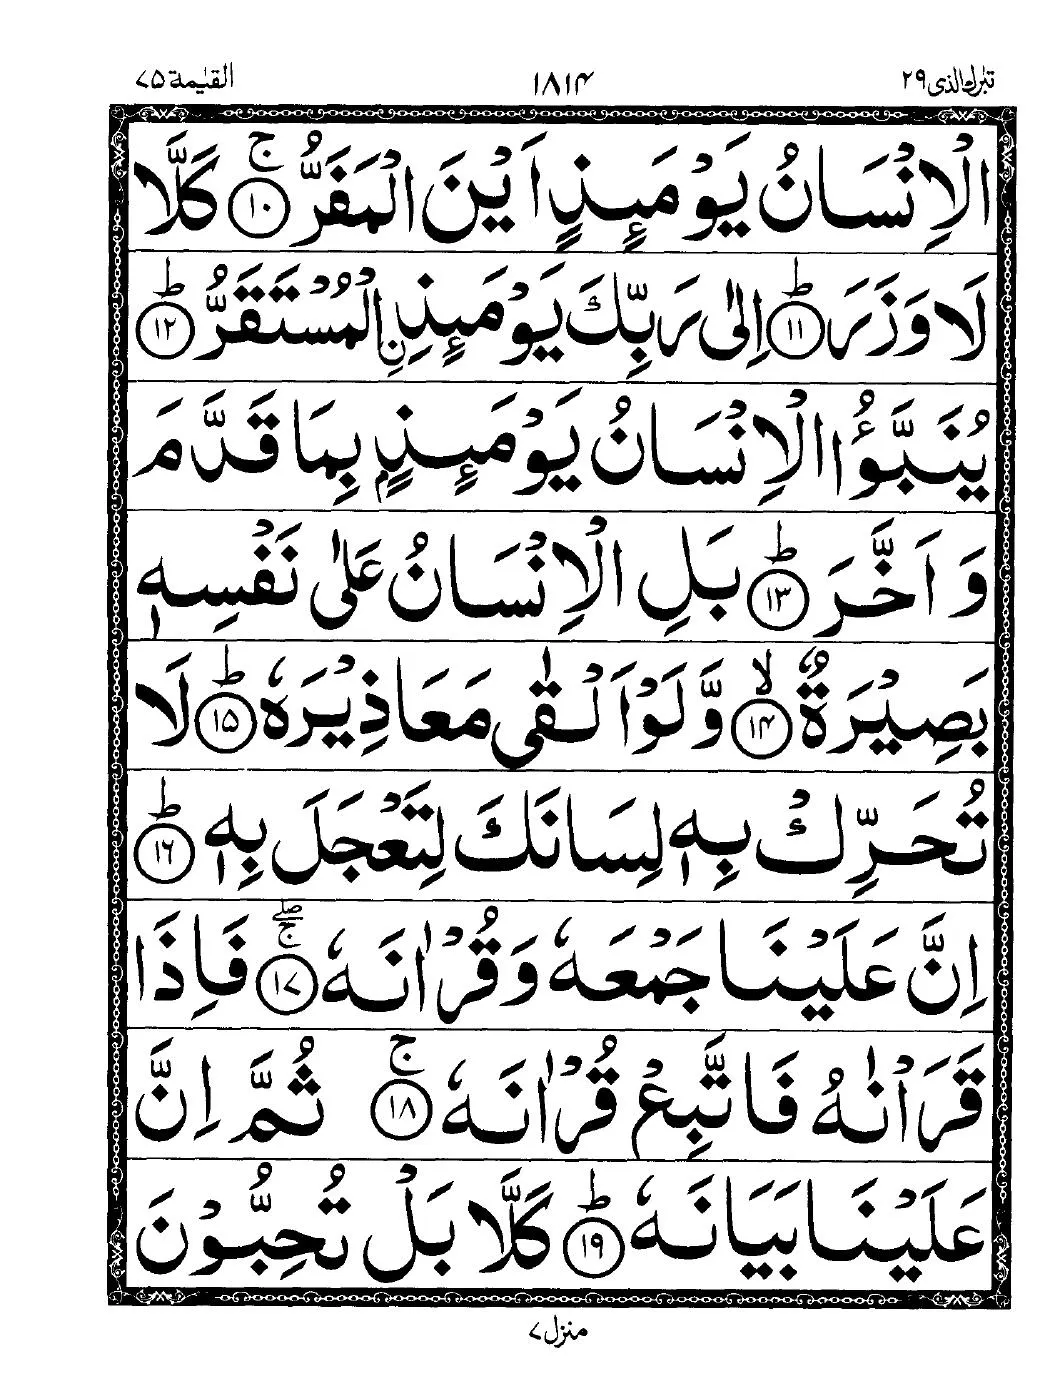 تبٰرك الذی ۲۹ ۱۸۱۴ القيٰمة ۷۵
الْاِنْسَانُ يَوْمَئِذٍ اَيْنَ الْمَفَرُّ ۚ﴿۱۰﴾ كَلَّا
لَا وَزَرَ ؕ﴿۱۱﴾ اِلٰى رَبِّكَ يَوْمَئِذِ ۨالْمُسْتَقَرُّ ؕ﴿۱۲﴾
يُنَبَّؤُا الْاِنْسَانُ يَوْمَئِذٍۭ بِمَا قَدَّمَ
وَ اَخَّرَ ؕ﴿۱۳﴾ بَلِ الْاِنْسَانُ عَلٰى نَفْسِهٖ
بَصِيْرَةٌ ۙ﴿۱۴﴾ وَّ لَوْ اَلْقٰى مَعَاذِيْرَهٗ ؕ﴿۱۵﴾ لَا
تُحَرِّكْ بِهٖ لِسَانَكَ لِتَعْجَلَ بِهٖ ؕ﴿۱۶﴾
اِنَّ عَلَيْنَا جَمْعَهٗ وَ قُرْاٰنَهٗ ۚۖ﴿۱۷﴾ فَاِذَا
قَرَاْنٰهُ فَاتَّبِعْ قُرْاٰنَهٗ ۚ﴿۱۸﴾ ثُمَّ اِنَّ
عَلَيْنَا بَيَانَهٗ ؕ﴿۱۹﴾ كَلَّا بَلْ تُحِبُّوْنَ
منزل ۷